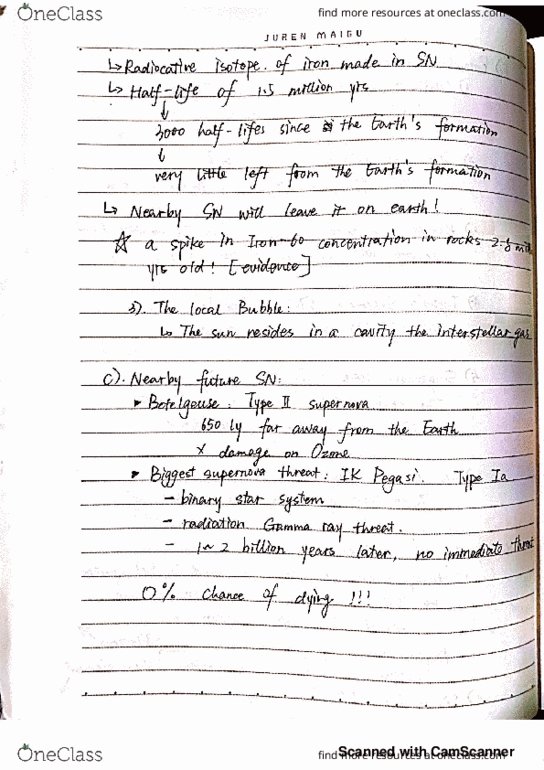 OneClass
find more resources at oneclass.com
JUREN MAIGU
↳ Radiocative isotope. of iron made in SN
↳ Half-life of 1.5 million yrs
↓
3000 half-lifes since the Earth's formation
↓
very little left from the Earth's formation
↳ Nearby SN will leave it on earth!
☆ a spike in Iron-60 concentration in rocks 2.8
yrs old! [evidence]
3). The local Bubble:
↳ The sun resides in a cavity the interstellar gas
c). Nearby future SN:
▸ Betelgeuse: Type II supernova
650 ly far away from the Earth
× damage on Ozone
▸ Biggest supernova threat: IK Pegasi. Type Ia
- binary star system
- radiation Gamma ray threat.
- 1~2 billion years later, no immediate threat
0% chance of dying !!!
OneClass
find more resources at oneclass.com
Scanned with CamScanner